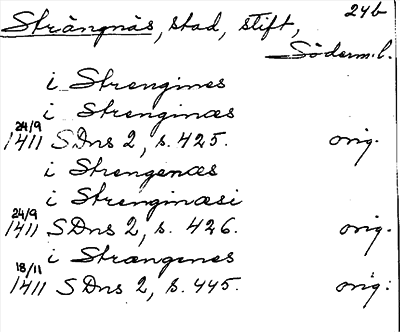 Strängnäs, stad, stift, 24b
Söderm.l.
i Strengines
i Strenginæs
24/9 1411 SDns 2, s. 425. orig.
i Strengenæs
i Strenginæsi
24/9 1411 SDns 2, s. 426. orig.
i Strængenes
18/11 1411 SDns 2, s. 445. orig.